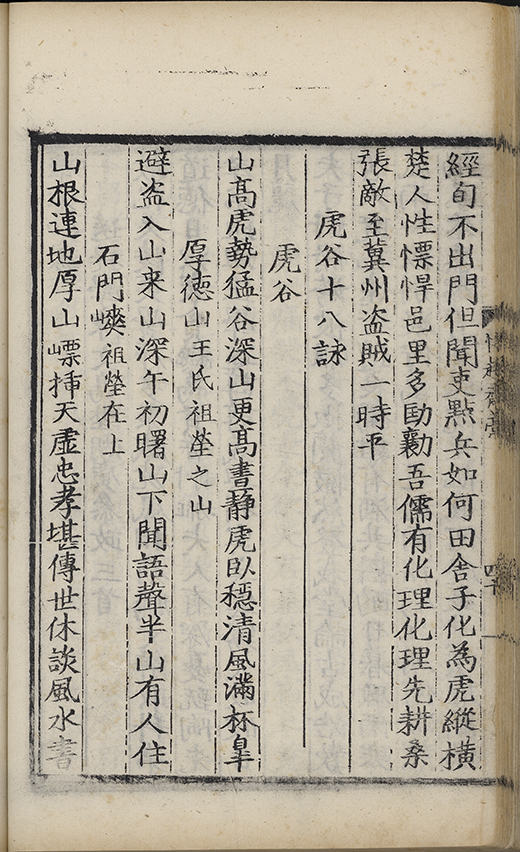 經旬不出門但聞吏點兵如何田舍子化為虎縱橫
楚人性慓悍邑里多劻勷吾儒有化理化理先耕桑
張敵至冀州盗賊一時平
虎谷十八詠
虎谷
山髙虎勢猛谷深山更髙晝静虎臥穩清風滿林皐
厚德山王氏祖塋之山
避盗入山来山深午初曙山下聞語聲半山有人住
石門祖塋在上
山根連地厚山挿天虛忠孝堪傳世休談風水書